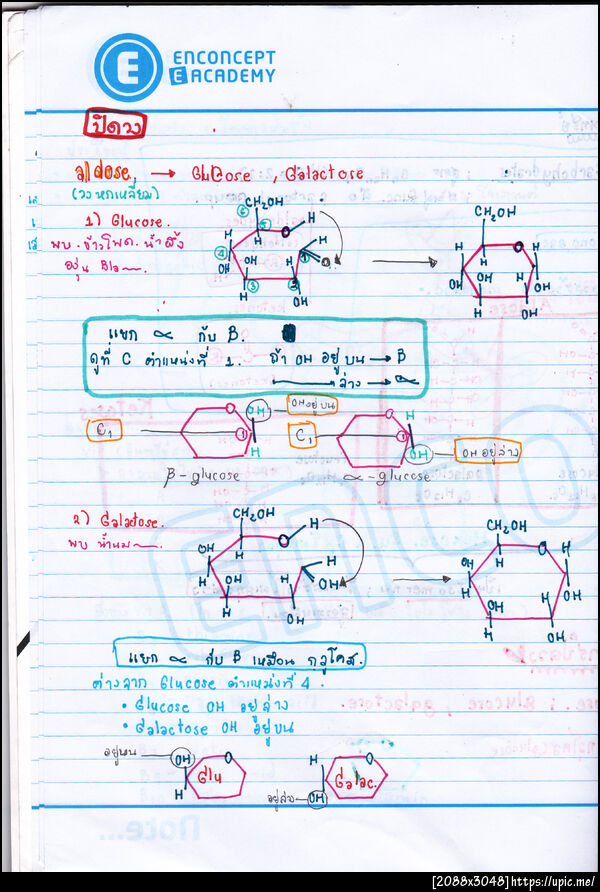 ENCONCEPT
E ACADEMY
ปิดวง
aldose → Glucose , Galactose
(วงหกเหลี่ยม)
1) Glucose.
พบ ข้าวโพด น้ำผึ้ง
องุ่น
CH₂OH
H
OH
CH₂OH
H
OH
แยก ∝ กับ β.
ดูที่ C ตำแหน่งที่ 1. ถ้า OH อยู่บน → β
ล่าง → ∝
C₁
OH
OHอยู่บน
H
β-glucose
C₁
H
OH
OH อยู่ล่าง
∝-glucose
2) Galactose.
พบ น้ำนม
CH₂OH
H
OH
CH₂OH
H
OH
แยก ∝ กับ β เหมือน กลูโคส.
ต่างจาก Glucose ตำแหน่งที่ 4.
• Glucose OH อยู่ล่าง
• Galactose OH อยู่บน
อยู่บน
OH
H
Glu
O
H
OH
อยู่ล่าง
Galac.
O
[2088x3048]https://upic.me/